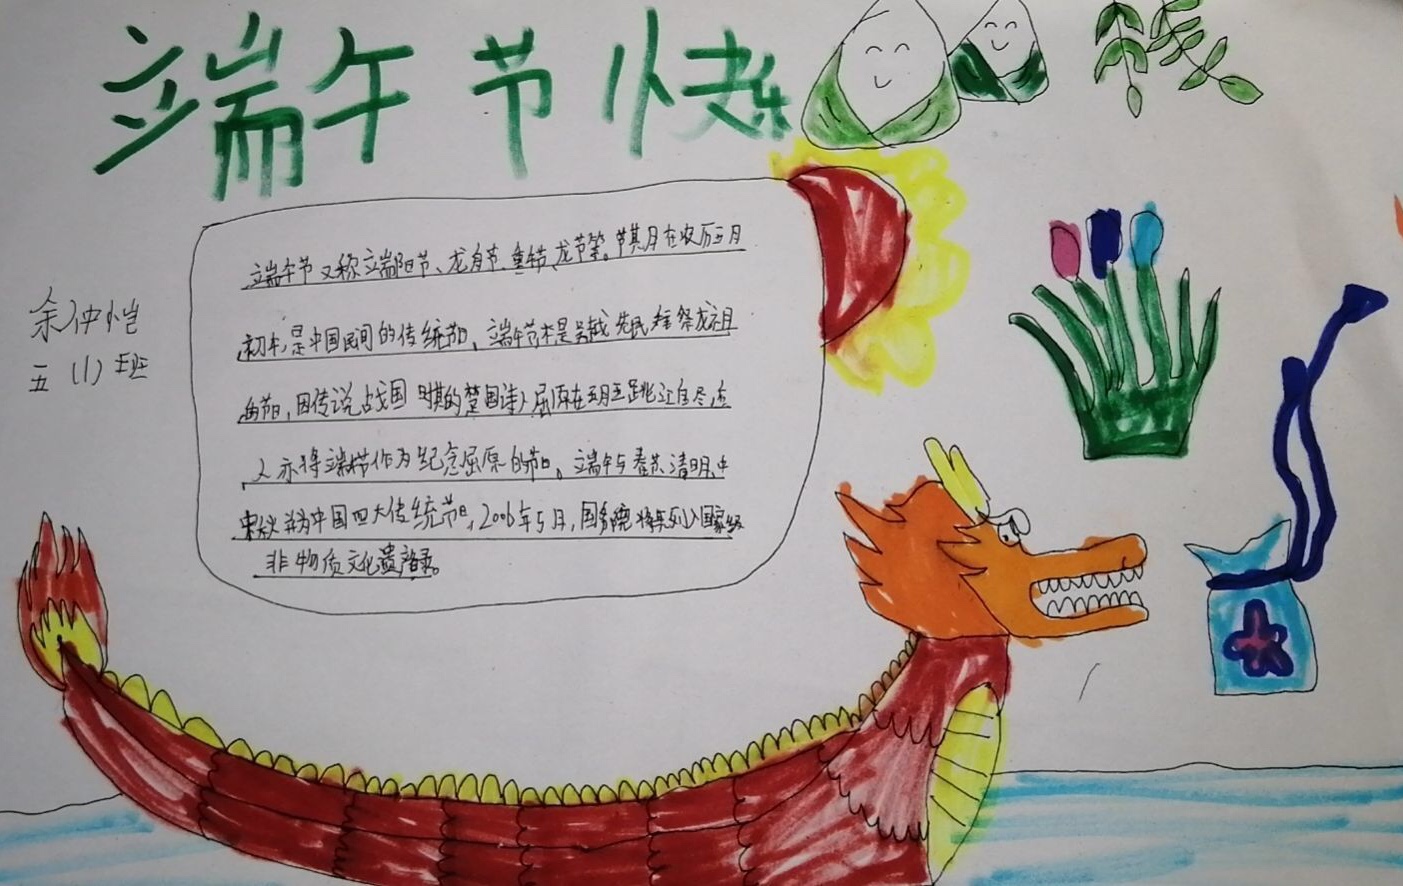 端午节快乐
余仲恺
五(1)班
端午节又称端阳节、龙舟节、重午节、龙节等。节其月在农历五月
初五,是中国民间的传统节日。端午节本是吴越先民祭龙祖
的节日,因传说战国时期的楚国诗人屈原在五月五跳江自尽,后
人亦将端午节作为纪念屈原的节日。端午与春节、清明、中
秋并为中国四大传统节日,2006年5月,国务院将其列入国家级
非物质文化遗产名录。